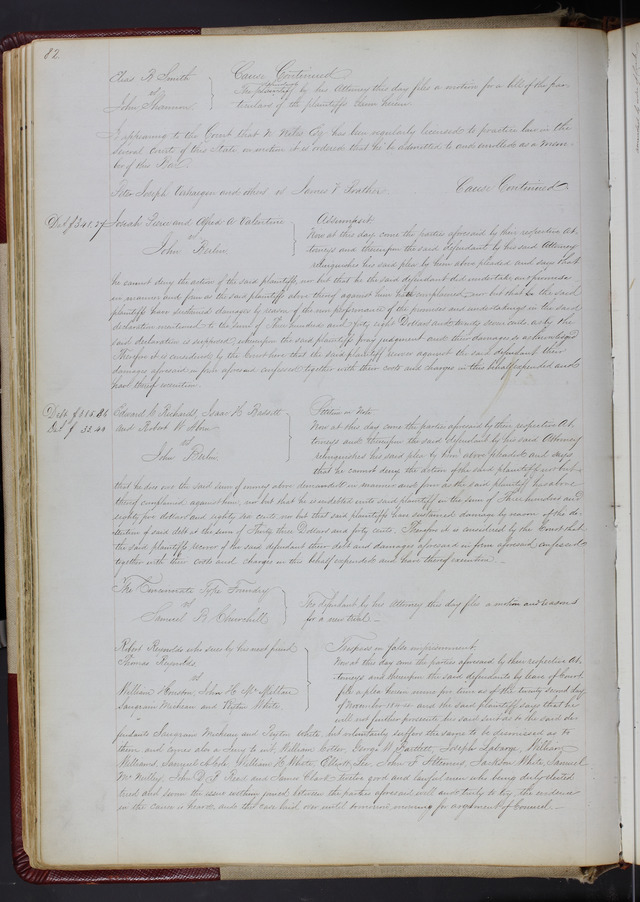 82
Elias R Smith
vs
John Shannon
Cause Continued
The plaintiff by his Attorney this day files a motion for a bill of the par-
ticulars of the plaintiffs claim herein.
It appearing to the Court that N. Esq has been regularly licensed to practice law in the
several Courts of this State on motion it is ordered that he be admitted to and enrolled as a mem-
ber of this Bar.
Peter Joseph and others vs James V Prather Cause Continued
Josiah and Alfred A Valentine
vs
John
Assumpsit
Now at this day come the parties aforesaid by their respective At-
torneys and thereupon the said defendant by his said Attorney
relinquishes his said plea by him above pleaded and says that
he cannot deny the action of the said plaintiffs, nor but that he the said defendant did undertake and promise
in manner and form as the said plaintiffs above thereof against him hath complained, nor but that the said
plaintiffs have sustained damages by reason of the non performance of the promises and undertakings in the said
declaration mentioned to the sum of Three hundred and forty eight Dollars and twenty seven cents as by the
said declaration is supposed, whereupon the said plaintiffs pray judgment and their damages so acknowledged
Therefore it is considered by the Court here that the said plaintiffs recover against the said defendant their
damages aforesaid in form aforesaid confessed together with their costs and charges in this behalf expended and
have thereof execution.
Debt $385.86
Das $ 33.40
Edward C Richards, Isaac H Bassett
and Robert W
vs
John
Petition on Note
Now at this day come the parties aforesaid by their respective At-
torneys and thereupon the said defendant by his said Attorney
relinquishes his said plea by him above pleaded and says
that he cannot deny the action of the said plaintiffs nor but
that he does owe the said sum of money above demanded in manner and form as the said plaintiffs have above
thereof complained against him, nor but that he is indebted unto said plaintiffs in the sum of Three hundred and
eighty five dollars and eighty six cents nor but that said plaintiffs have sustained damage by reason of the de-
tention of said debt to the sum of Thirty three Dollars and forty cents. Therefore it is considered by the Court that
the said plaintiffs recover of the said defendant their debt and damages aforesaid in form aforesaid confessed
together with their costs and charges in this behalf expended and have thereof execution.
The Cincinnati Type Foundry
vs
Samuel B Churchill
The defendant by his Attorney this day files a motion and reasons
for a new trial.
Robert Reynolds who sues by his next friend
Thomas Reynolds
vs
William Houston, John H McMillan
Sangrain and Peyton White
Trespass on false imprisonment
Now at this day come the parties aforesaid by their respective At-
torneys and thereupon the said defendants by leave of Court
file a plea herein nunc pro tunc as of the twenty second day
of November 1842 and the said plaintiff says that he
will not further prosecute his said suit as to the said de-
fendants Sangrain and Peyton White, but voluntarily suffers the same to be dismissed as to
them and comes also a Jury to wit, William Cotter, George W Bartlett, Joseph Labarge, William
Williams, Samuel A Cole, William H White, Elliott Lee, John F Jackson White, Samuel
John D. F and James Clark twelve good and lawful men who being duly elected
tried and sworn the issue within joined between the parties aforesaid well and truly to try, the evidence
in the cause is heard and the case laid over until tomorrow morning for argument of Counsel.